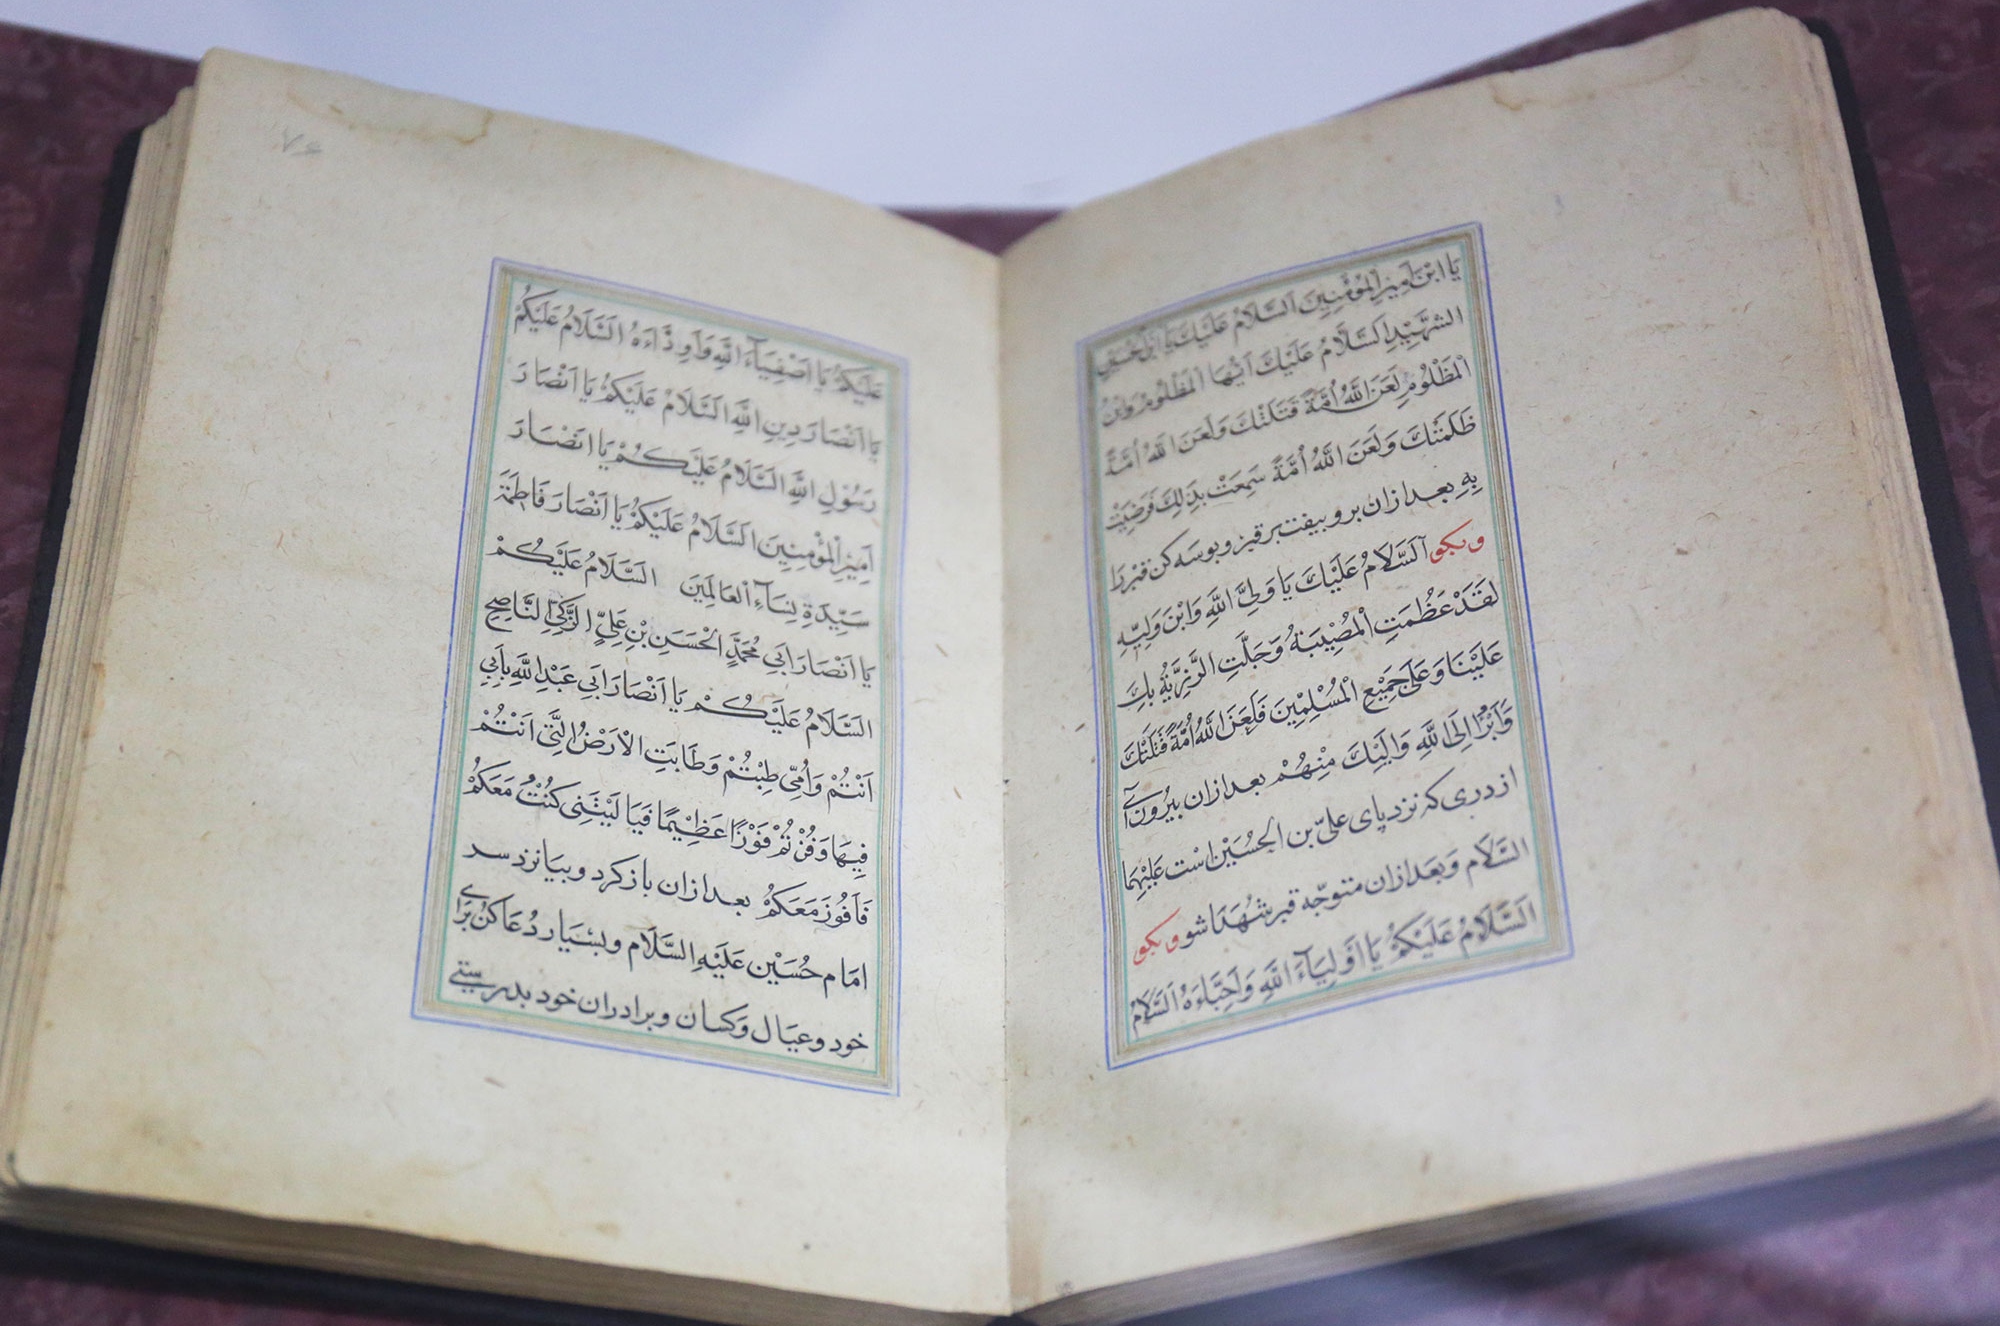 يَا ابْنَ اَمِيرِ الْمُؤْمِنِينَ اَلسَّلَامُ عَلَيْكَ يَا ابْنَ الْحُسَيْنِ
الشَّهِيدِ اَلسَّلَامُ عَلَيْكَ اَيُّهَا الْمَظْلُومُ وَابْنُ
الْمَظْلُومِ لَعَنَ اللّٰهُ اُمَّةً قَتَلَتْكَ وَلَعَنَ اللّٰهُ اُمَّةً
ظَلَمَتْكَ وَلَعَنَ اللّٰهُ اُمَّةً سَمِعَتْ بِذٰلِكَ فَرَضِيَتْ
بِهِ بعد ازان برو بیفت بر قبر و بوسه کن قبر را
و بکو اَلسَّلَامُ عَلَيْكَ يَا وَلِيَّ اللّٰهِ وَابْنَ وَلِيِّهِ
لَقَدْ عَظُمَتِ الْمُصِيْبَةُ وَجَلَّتِ الرَّزِيَّةُ بِكَ
عَلَيْنَا وَعَلَى جَمِيْعِ الْمُسْلِمِيْنَ فَلَعَنَ اللّٰهُ اُمَّةً قَتَلَتْكَ
وَاَبْرَأُ اِلَى اللّٰهِ وَاِلَيْكَ مِنْهُمْ بعد ازان بیرون آی
از دری که نزد پای علیّ بن الحُسَیْن است عَلَیْهِمَا
السَّلَام وَ بعد ازان متوجّه قبر شُهَدَا شو و بکو
اَلسَّلَامُ عَلَيْكُمْ يَا اَوْلِيَآءَ اللّٰهِ وَاَحِبَّاءَهُ اَلسَّلَامُ
٧۶
عَلَيْكُمْ يَا اَصْفِيَآءَ اللّٰهِ وَاَوِدَّاءَهُ اَلسَّلَامُ عَلَيْكُمْ
يَا اَنْصَارَ دِينِ اللّٰهِ اَلسَّلَامُ عَلَيْكُمْ يَا اَنْصَارَ
رَسُوْلِ اللّٰهِ اَلسَّلَامُ عَلَيْكُمْ يَا اَنْصَارَ
اَمِيْرِ الْمُؤْمِنِيْنَ اَلسَّلَامُ عَلَيْكُمْ يَا اَنْصَارَ فَاطِمَةَ
سَيِّدَةِ نِسَآءِ الْعَالَمِيْنَ اَلسَّلَامُ عَلَيْكُمْ
يَا اَنْصَارَ اَبِي مُحَمَّدٍ الْحَسَنِ بْنِ عَلِيٍّ الزَّكِيِّ النَّاصِحِ
اَلسَّلَامُ عَلَيْكُمْ يَا اَنْصَارَ اَبِي عَبْدِ اللّٰهِ بِاَبِي
اَنْتُمْ وَاُمِّي طِبْتُمْ وَطَابَتِ الْاَرْضُ الَّتِي اَنْتُمْ
فِيْهَا وَفُزْتُمْ فَوْزًا عَظِيْمًا فَيَا لَيْتَنِي كُنْتُ مَعَكُمْ
فَاَفُوْزَ مَعَكُمْ بعد ازان باز کرد و بیا نزد سر
امَام حُسَیْن عَلَیْهِ السَّلَام و بسیار دُعَا کُن بَرَای
خود و عیَال وَ کسان و برادران خود بدرستی